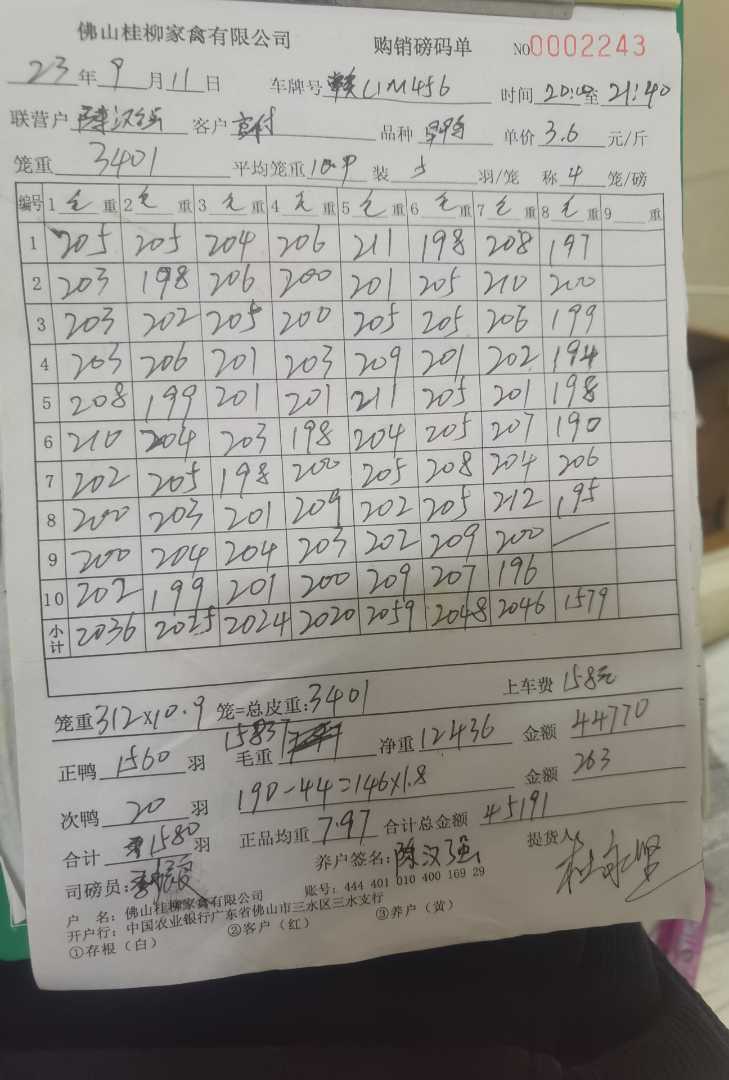 佛山桂柳家禽有限公司 购销磅码单 NO0002243
23年9月11日 车牌号 赣 时间 至21:40
联营户 陈汉强 客户 品种 单价3.6元/斤
笼重 3401 平均笼重10.9 装 5 羽/笼 称 4 笼/磅
编号 1 毛 重 2 毛 重 3 毛 重 4 毛 重 5 毛 重 6 毛 重 7 毛 重 8 毛 重 9 重
1 205 205 204 206 211 198 208 197
2 203 198 206 200 201 205 210 200
3 203 202 205 200 205 205 206 199
4 203 206 201 203 209 201 202 194
5 208 199 201 201 211 205 201 198
6 210 204 203 198 204 205 207 190
7 202 205 198 200 205 208 204 206
8 200 203 201 209 202 205 212 195
9 200 204 204 203 202 209 200
10 202 199 201 200 209 207 196
小计 2036 2025 2024 2020 2059 2048 2046 1579
笼重312×10.9 笼=总皮重:3401 上车费 158元
正鸭 1560 羽 毛重 15837 净重12436 金额 44770
次鸭 20 羽 190-44=146×1.8 金额 263
合计 1580 羽 正品均重 7.97 合计总金额 45191
司磅员: 养户签名:陈汉强 提货人:
户 名:佛山桂柳家禽有限公司 账号:444 401 010 400 169 29
开户行:中国农业银行广东省佛山市三水区三水支行
①存根(白) ②客户(红) ③养户(黄)